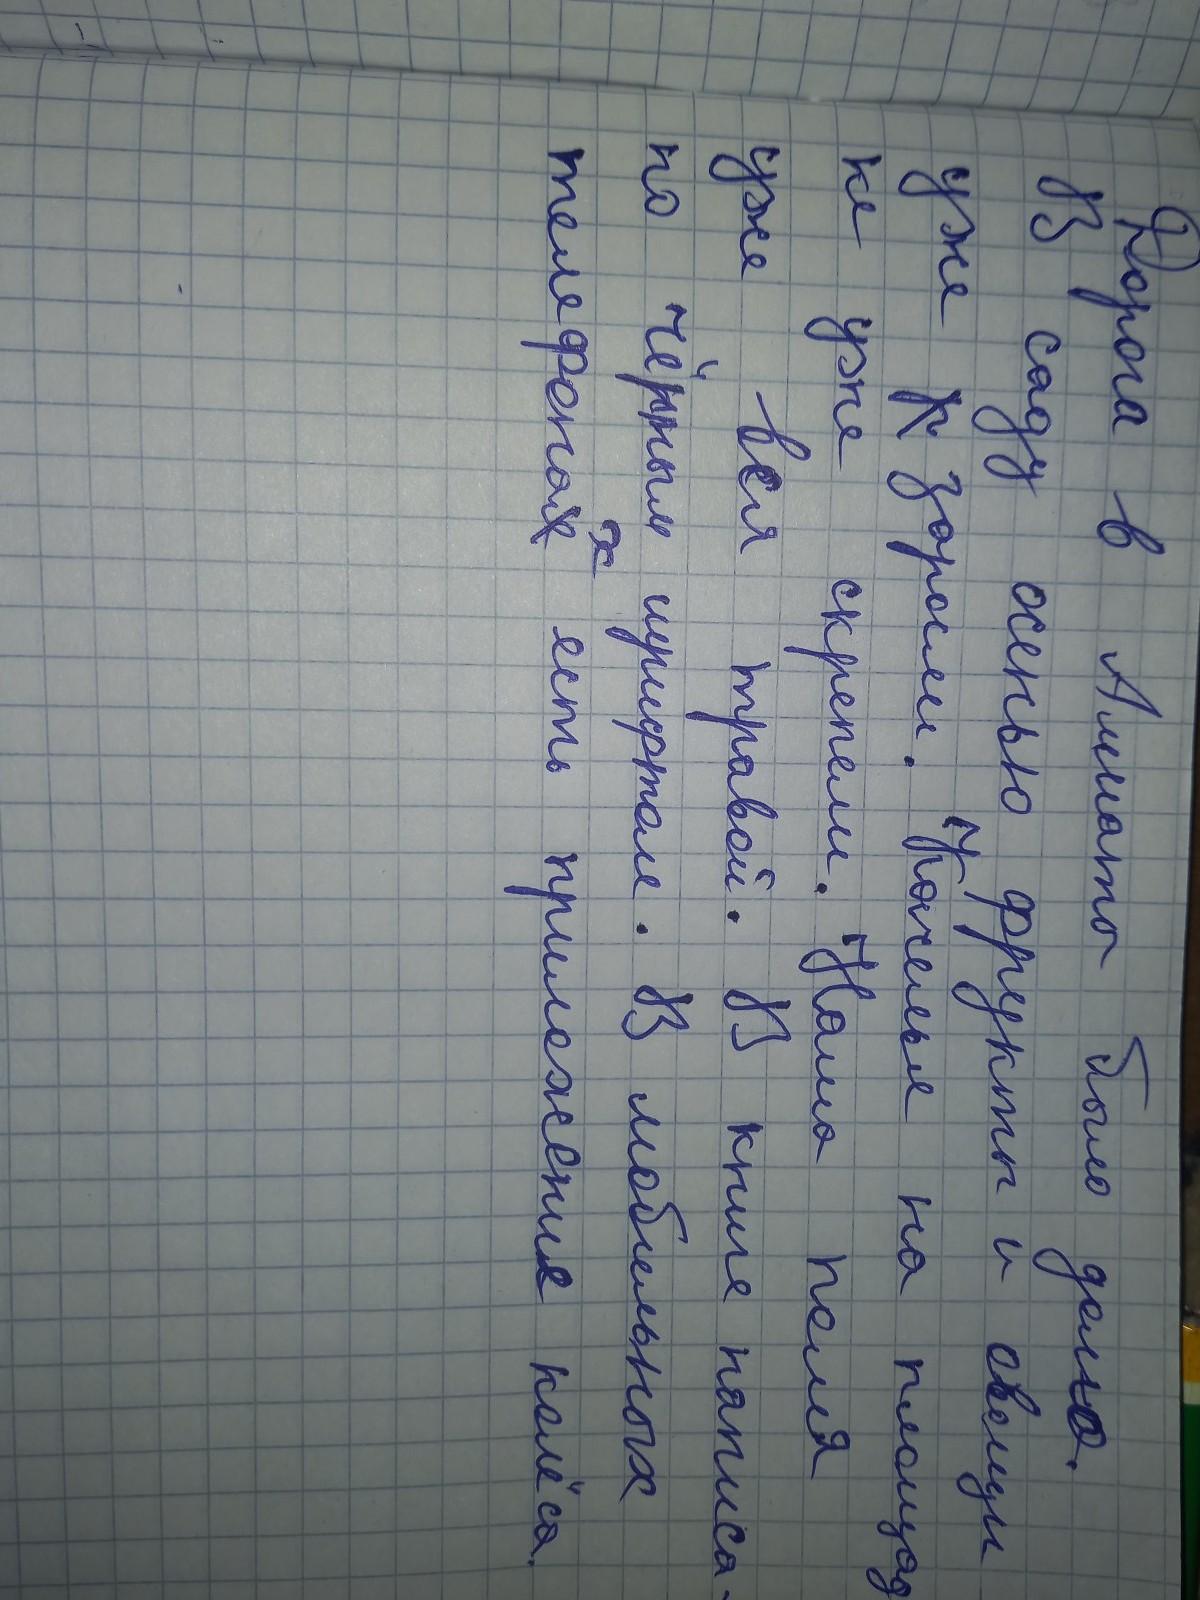 Дорога в Алматы было дально.
В саду осенью фрукты и овощи
уже к зароем. Качелья на площад
ке уже скрепели. Нама поля
уже вся травой. В книге написа-
но чёрным шрифтом. В мобильных
телефонах есть приложения колёса.
х